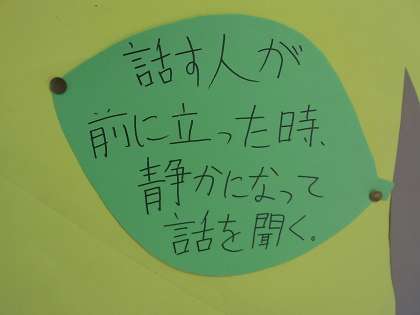 話す人が
前に立った時、
静かになって
話を聞く。